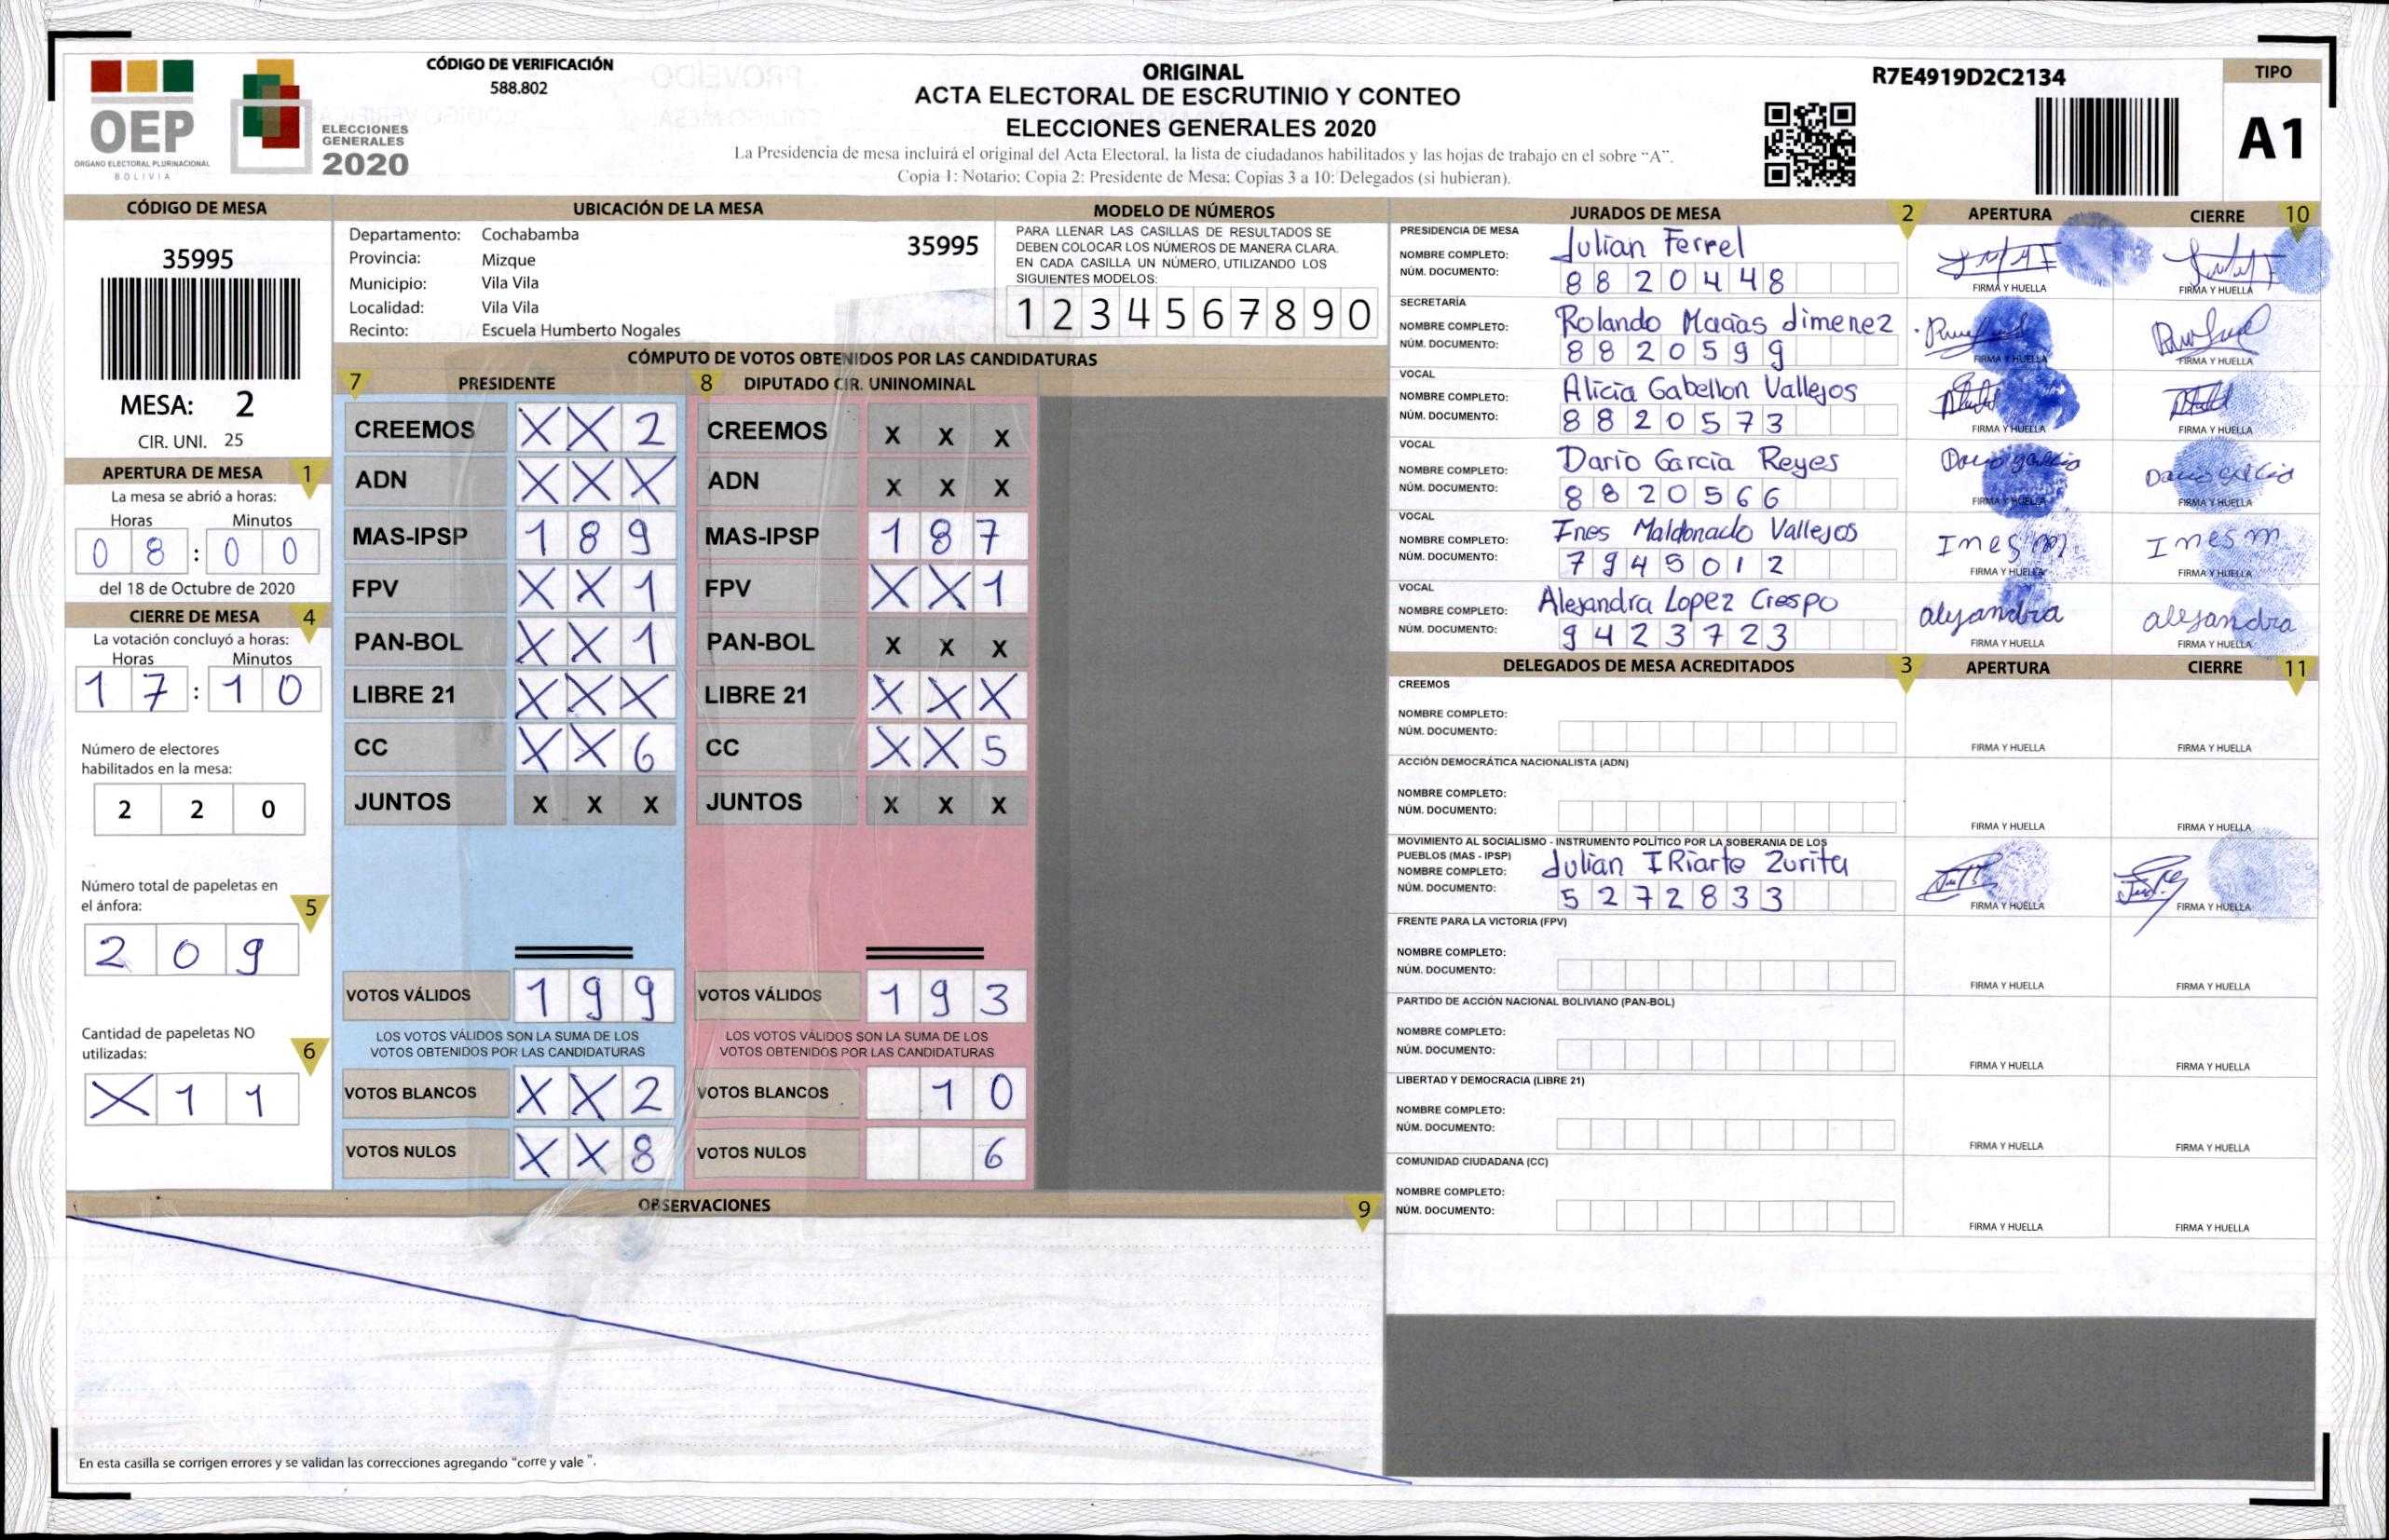 OEP
ÓRGANO ELECTORAL PLURINACIONAL
BOLIVIA
ELECCIONES
GENERALES
2020
CÓDIGO DE VERIFICACIÓN
588.802
ORIGINAL
ACTA ELECTORAL DE ESCRUTINIO Y CONTEO
ELECCIONES GENERALES 2020
La Presidencia de mesa incluirá el original del Acta Electoral, la lista de ciudadanos habilitados y las hojas de trabajo en el sobre "A".
Copia 1: Notario; Copia 2: Presidente de Mesa; Copias 3 a 10: Delegados (si hubieran).
R7E4919D2C2134
TIPO
A1
CÓDIGO DE MESA
35995
MESA: 2
CIR. UNI. 25
APERTURA DE MESA 1
La mesa se abrió a horas:
Horas Minutos
0 8 : 0 0
del 18 de Octubre de 2020
CIERRE DE MESA 4
La votación concluyó a horas:
Horas Minutos
1 7 : 1 0
Número de electores
habilitados en la mesa:
2 2 0
Número total de papeletas en
el ánfora: 5
2 0 9
Cantidad de papeletas NO
utilizadas: 6
X 1 1
UBICACIÓN DE LA MESA
Departamento: Cochabamba
35995
Provincia: Mizque
Municipio: Vila Vila
Localidad: Vila Vila
Recinto: Escuela Humberto Nogales
MODELO DE NÚMEROS
PARA LLENAR LAS CASILLAS DE RESULTADOS SE
DEBEN COLOCAR LOS NÚMEROS DE MANERA CLARA.
EN CADA CASILLA UN NÚMERO, UTILIZANDO LOS
SIGUIENTES MODELOS:
1 2 3 4 5 6 7 8 9 0
CÓMPUTO DE VOTOS OBTENIDOS POR LAS CANDIDATURAS
7 PRESIDENTE
CREEMOS X X 2
ADN X X X
MAS-IPSP 1 8 9
FPV X X 1
PAN-BOL X X 1
LIBRE 21 X X X
CC X X 6
JUNTOS X X X
VOTOS VÁLIDOS 1 9 9
LOS VOTOS VÁLIDOS SON LA SUMA DE LOS
VOTOS OBTENIDOS POR LAS CANDIDATURAS
VOTOS BLANCOS X X 2
VOTOS NULOS X X 8
8 DIPUTADO CIR. UNINOMINAL
CREEMOS X X X
ADN X X X
MAS-IPSP 1 8 7
FPV X X 1
PAN-BOL X X X
LIBRE 21 X X X
CC X X 5
JUNTOS X X X
VOTOS VÁLIDOS 1 9 3
LOS VOTOS VÁLIDOS SON LA SUMA DE LOS
VOTOS OBTENIDOS POR LAS CANDIDATURAS
VOTOS BLANCOS 1 0
VOTOS NULOS 6
OBSERVACIONES 9
En esta casilla se corrigen errores y se validan las correcciones agregando "corre y vale ".
JURADOS DE MESA 2 APERTURA CIERRE 10
PRESIDENCIA DE MESA
NOMBRE COMPLETO: Julian Ferrel
NÚM. DOCUMENTO: 8 8 2 0 4 4 8
FIRMA Y HUELLA FIRMA Y HUELLA
SECRETARÍA
NOMBRE COMPLETO: Rolando Macias Jimenez
NÚM. DOCUMENTO: 8 8 2 0 5 9 9
FIRMA Y HUELLA FIRMA Y HUELLA
VOCAL
NOMBRE COMPLETO: Alicia Gabellon Vallejos
NÚM. DOCUMENTO: 8 8 2 0 5 7 3
FIRMA Y HUELLA FIRMA Y HUELLA
VOCAL
NOMBRE COMPLETO: Dario Garcia Reyes
NÚM. DOCUMENTO: 8 8 2 0 5 6 6
FIRMA Y HUELLA FIRMA Y HUELLA
VOCAL
NOMBRE COMPLETO: Ines Maldonado Vallejos Ines m. Ines m
NÚM. DOCUMENTO: 7 9 4 5 0 1 2
FIRMA Y HUELLA FIRMA Y HUELLA
VOCAL
NOMBRE COMPLETO: Alejandra Lopez Crespo alejandra alejandra
NÚM. DOCUMENTO: 9 4 2 3 7 2 3
FIRMA Y HUELLA FIRMA Y HUELLA
DELEGADOS DE MESA ACREDITADOS 3 APERTURA CIERRE 11
CREEMOS
NOMBRE COMPLETO:
NÚM. DOCUMENTO:
FIRMA Y HUELLA FIRMA Y HUELLA
ACCIÓN DEMOCRÁTICA NACIONALISTA (ADN)
NOMBRE COMPLETO:
NÚM. DOCUMENTO:
FIRMA Y HUELLA FIRMA Y HUELLA
MOVIMIENTO AL SOCIALISMO - INSTRUMENTO POLÍTICO POR LA SOBERANIA DE LOS
PUEBLOS (MAS - IPSP)
NOMBRE COMPLETO: Julian IRiarte Zurita
NÚM. DOCUMENTO: 5 2 7 2 8 3 3
FIRMA Y HUELLA FIRMA Y HUELLA
FRENTE PARA LA VICTORIA (FPV)
NOMBRE COMPLETO:
NÚM. DOCUMENTO:
FIRMA Y HUELLA FIRMA Y HUELLA
PARTIDO DE ACCIÓN NACIONAL BOLIVIANO (PAN-BOL)
NOMBRE COMPLETO:
NÚM. DOCUMENTO:
FIRMA Y HUELLA FIRMA Y HUELLA
LIBERTAD Y DEMOCRACIA (LIBRE 21)
NOMBRE COMPLETO:
NÚM. DOCUMENTO:
FIRMA Y HUELLA FIRMA Y HUELLA
COMUNIDAD CIUDADANA (CC)
NOMBRE COMPLETO:
NÚM. DOCUMENTO:
FIRMA Y HUELLA FIRMA Y HUELLA